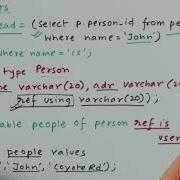 rs
ead = (select p.person_id from pe
where name='John')
where name='cs';
type Person
e varchar(20), adr varchar(20
ref using varchar(20));
able people of person ref is
user
people values
','John','Coyote Rd');